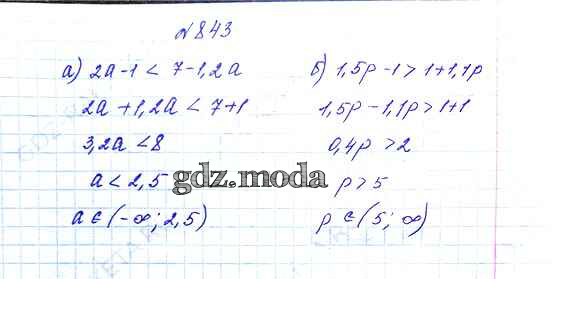 №843
а) 2a-1 < 7-1,2a
2a+1,2a < 7+1
3,2a < 8
a < 2,5
a ∈ (-∞; 2,5)
б) 1,5p-1 > 1+1,1p
1,5p-1,1p > 1+1
0,4p > 2
p > 5
p ∈ (5; ∞)
gdz.moda